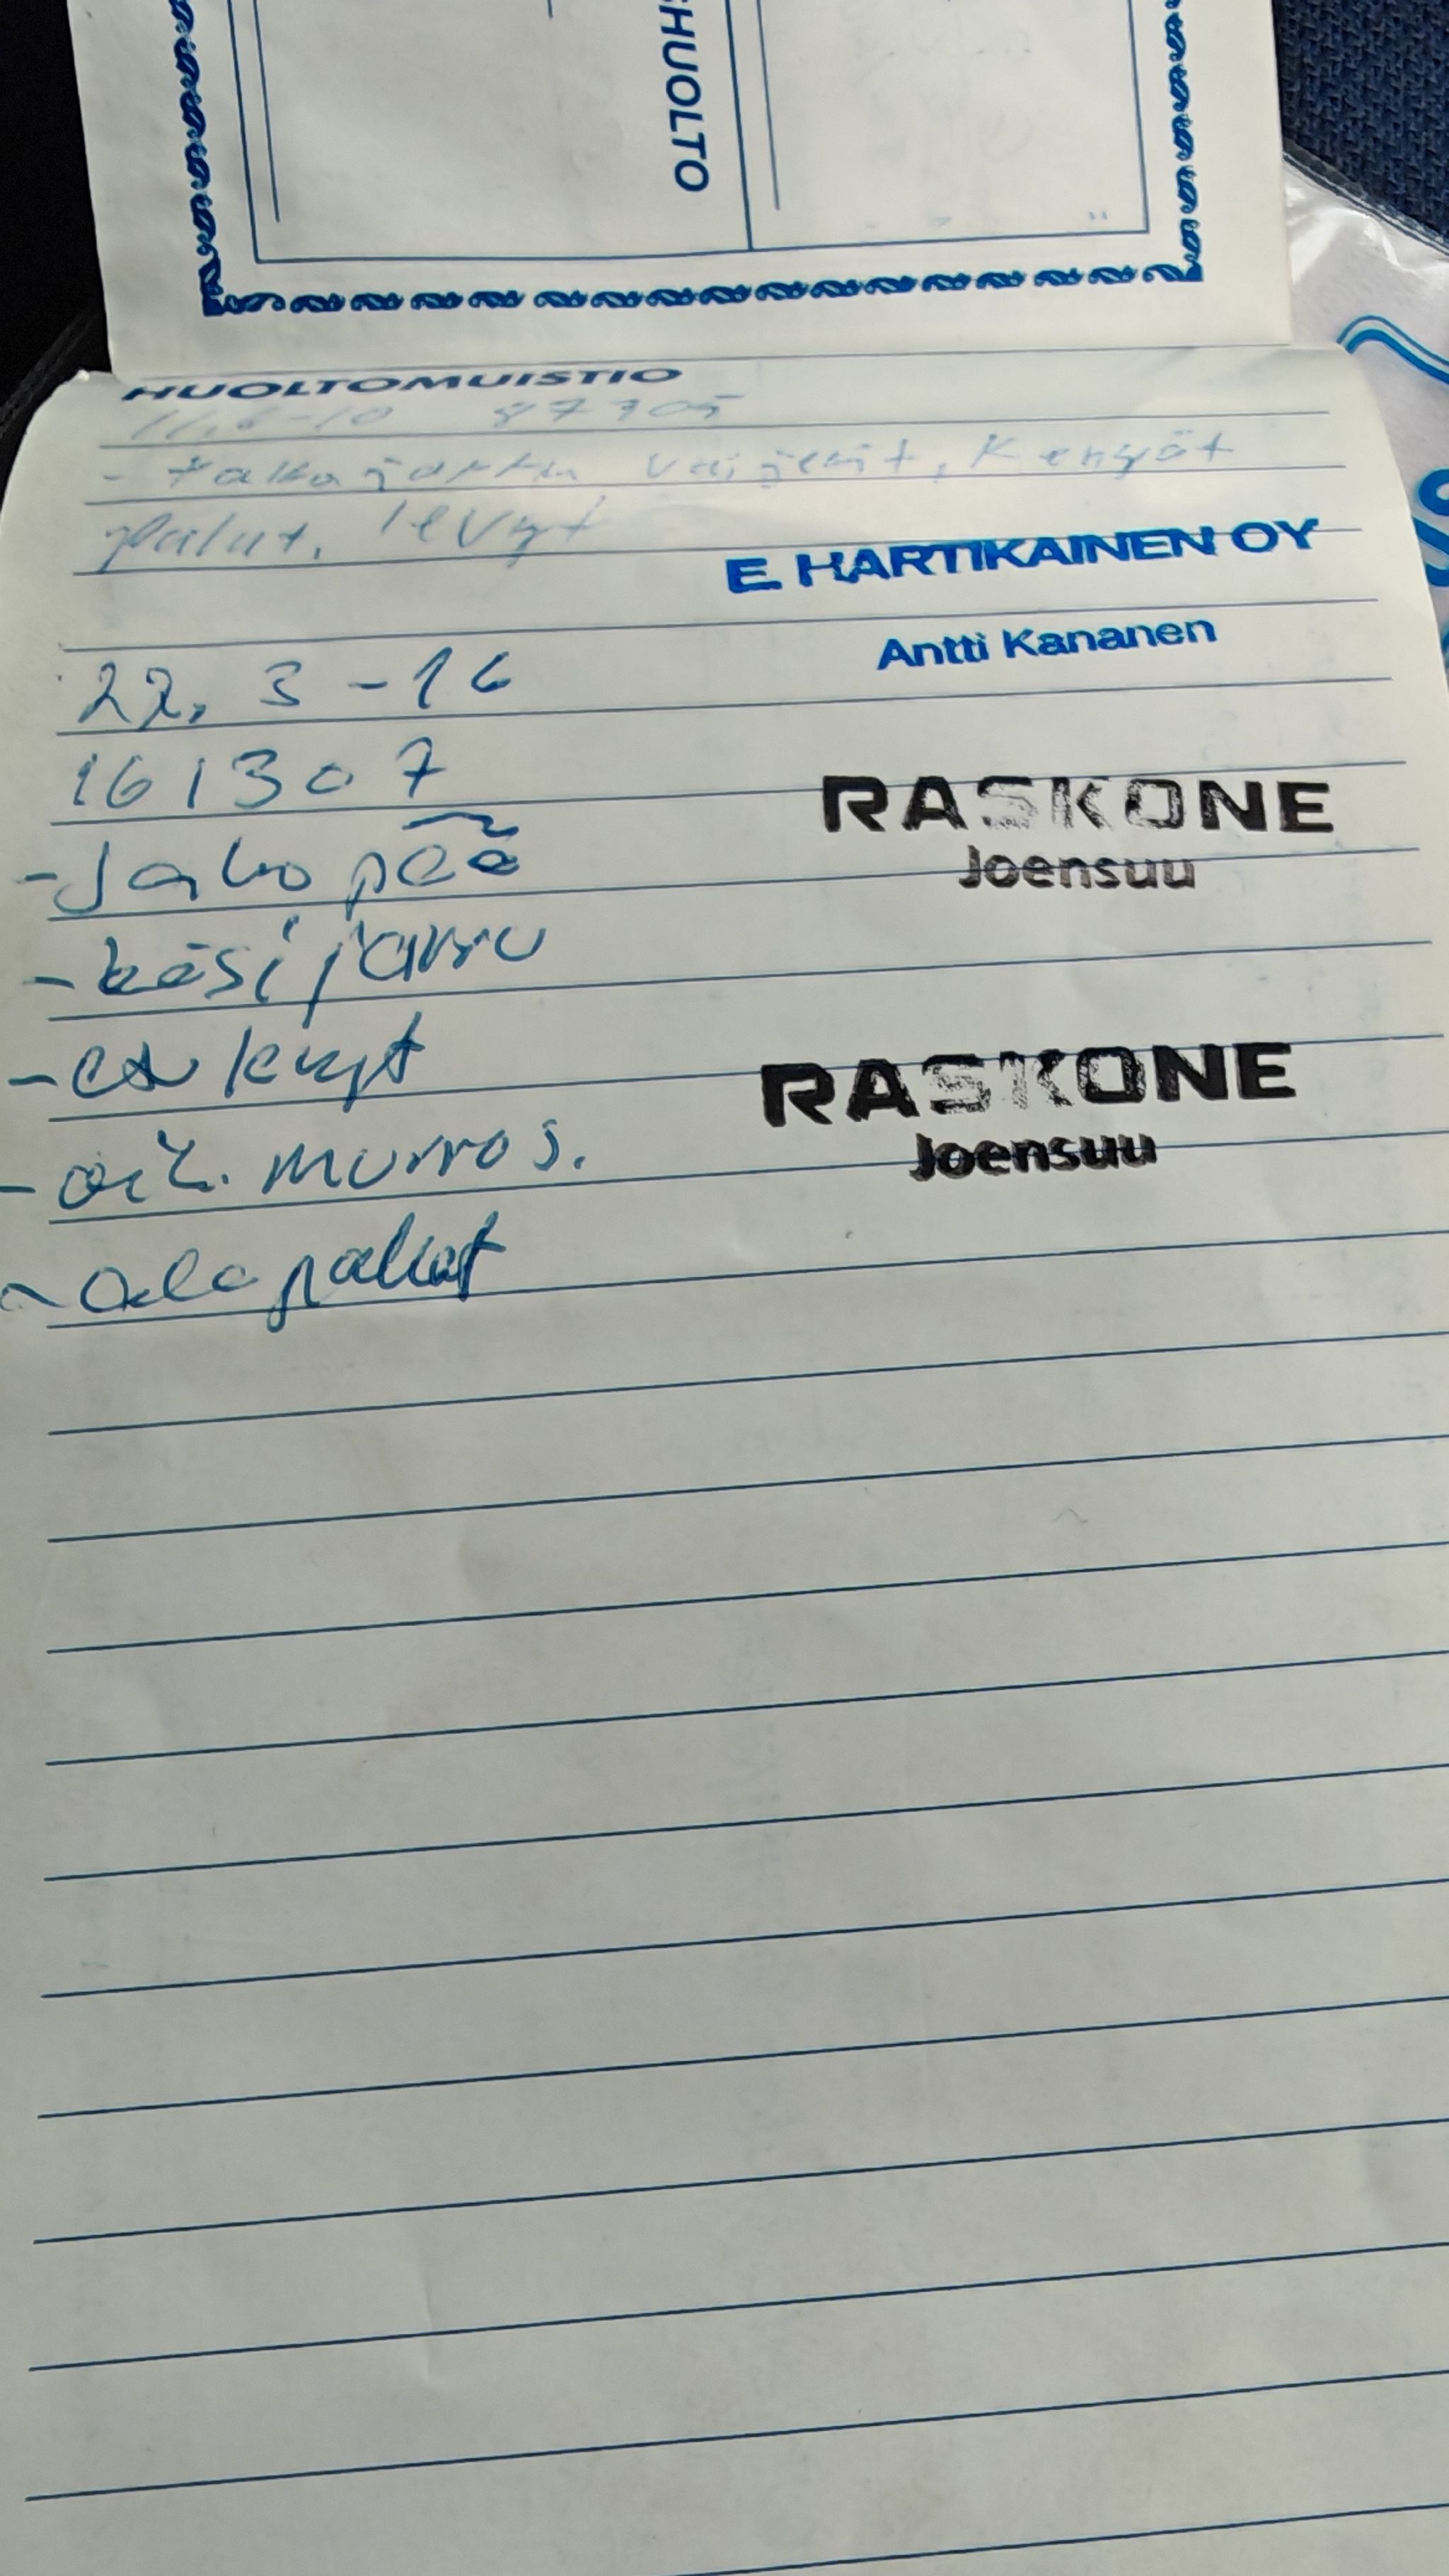 HUOLTO
HUOLTOMUISTIO
11.6-10 87705
- takajarrun vaijerit, Kengät
palat, levyt
E. HARTIKAINEN OY
Antti Kananen
22. 3 -16
161307
RASKONE
Joensuu
- Jakopää
- käsijarru
- et kegt
RASKONE
Joensuu
- oik. murros.
- ala pallot